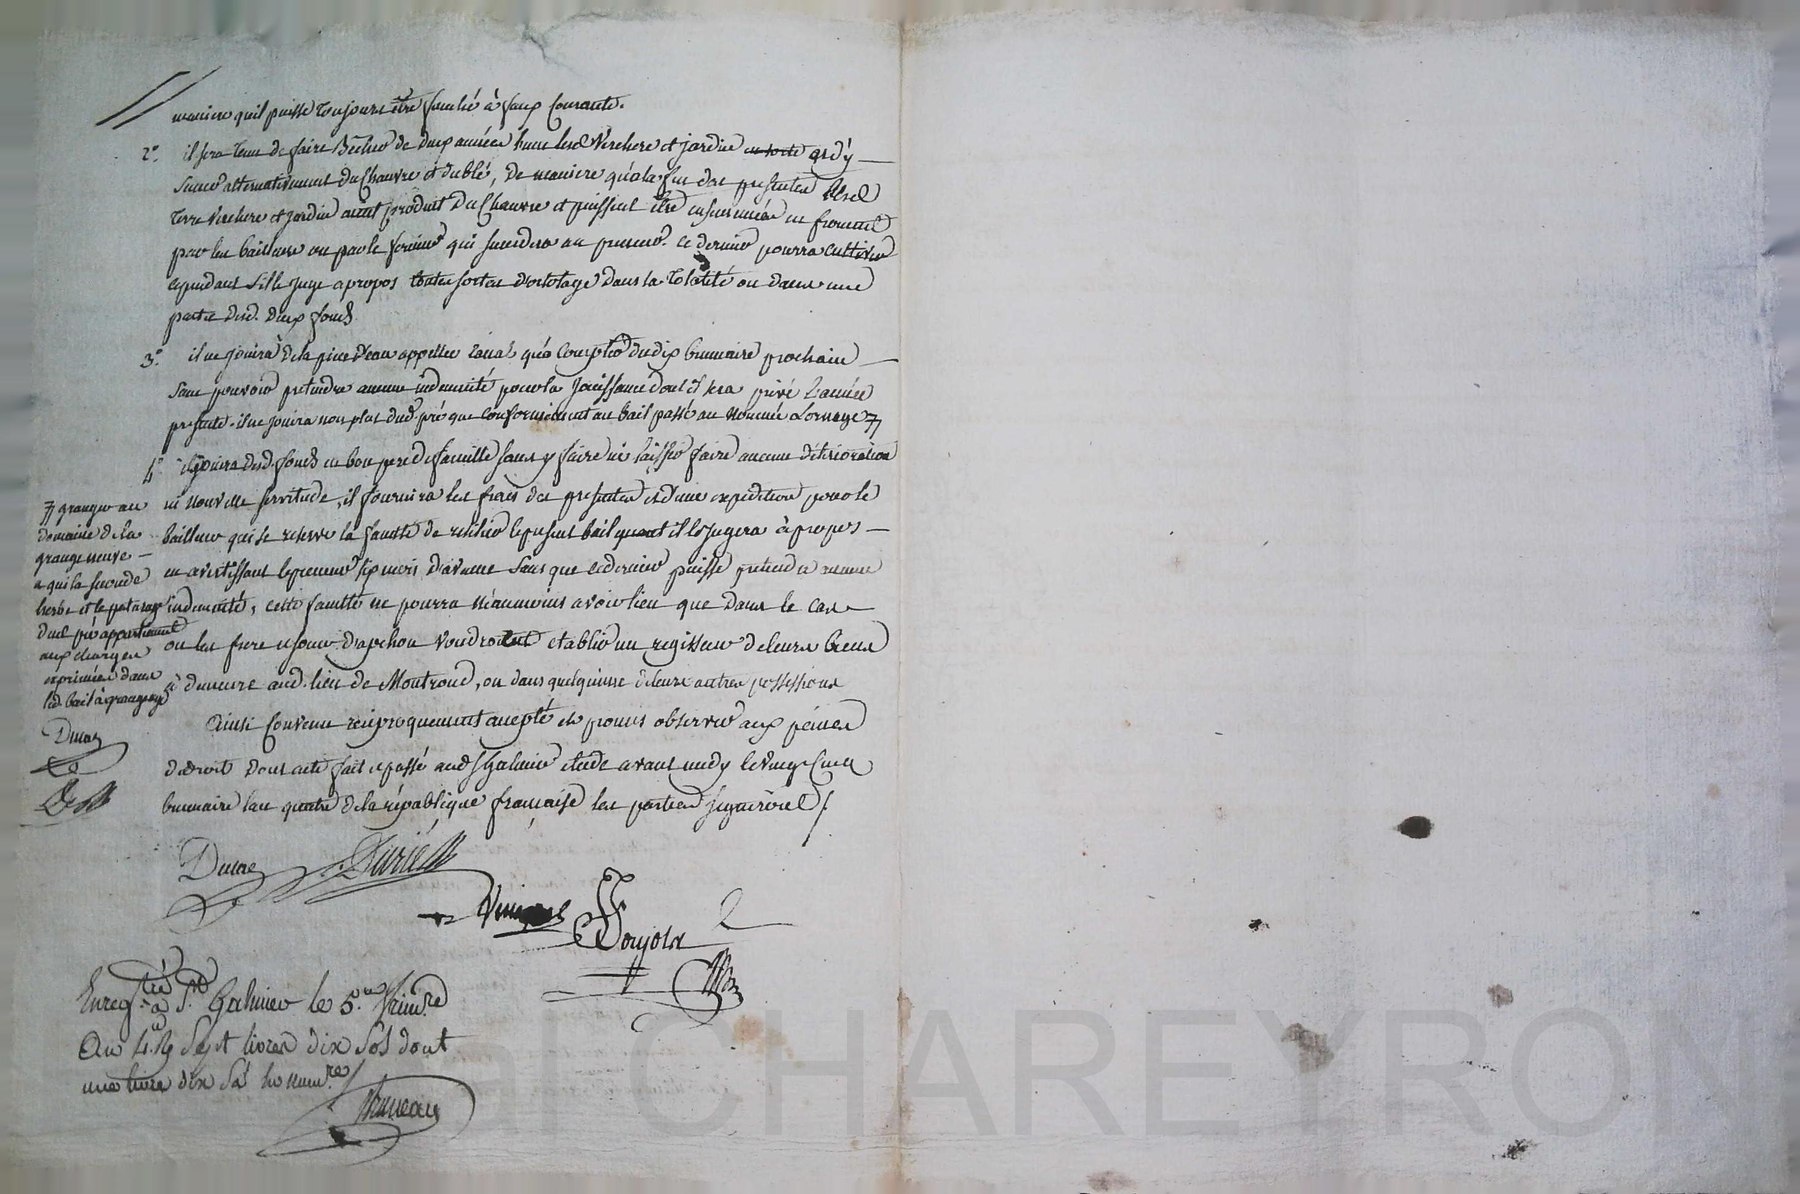 maniere quil puisse toujours être fauché à faux Courante.
2°. il sera tenu de faire Bêcher de deux années l'une lesd Verchere et jardin en sorte et d'y
semer alternativement du Chanvre et du blé, de maniere qu'a la fin des presentes lesd
terre Verchere et jardin aient produit du Chanvre et puissent être ensemencées en froment
par les bailleurs ou par le fermier qui succedera au preneur. ce dernier pourra cultiver
cependant s'il le juge apropos toutes sortes d'ortolage dans la totalité ou dans une
partie desd. deux fonds.
3°. il ne jouira de la piece d'eau appellée canal qu'a Compter du dix brumaire prochain
sans pouvoir pretendre aucune indemnité pour la Jouissance dont il sera privé l'année
presente. il ne jouira non plus dud. pré que Conformément au bail passé au nommé
4° il jouira desd. fonds en bon pere de famille sans y faire ni laisser faire aucune déterioration
ni nouvelle servitude, il fournira les frais des presentes et d'une expedition pour le
bailleur qui se reserve la faculté de resilier le present bail quant il le jugera à propos
en avertissant le preneur six mois d'avance sans que ce dernier puisse pretendre aucune
indemnité, cette faculté ne pourra néanmoins avoir lieu que dans le cas
ou les frere et soeur d'apchon Voudroient etablir un regisseur de leurs biens
à demeure aud. lieu de Montrond, ou dans quelqu'une de leurs autres possessions
granger au
domaine de la
grange neuve
a qui la seconde
herbe et le paturage
dud pré appartiennent
aux charges
exprimées dans
led. bail à grangeage
Ainsi Convenu reciproquement accepté et promis observer aux peines
de droit dont acte fait et passé aud St Galmier etude avant midy le vingt Cinq
brumaire l'an quatre de la république française les parties
Enreg.tré à St Galmier le 5.me frim.re
an 4. R Sept livres dix sols dont
une livre dix s.
CHAREYRON